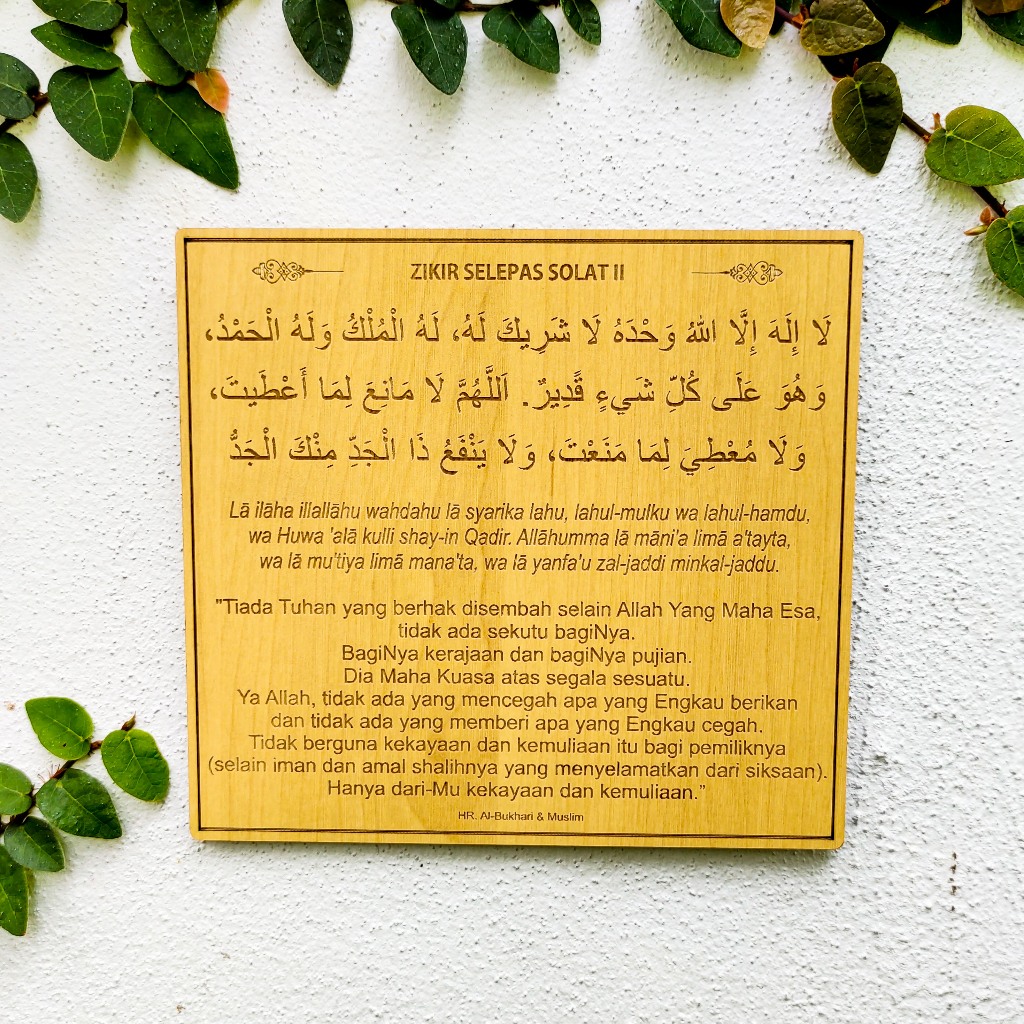 ZIKIR SELEPAS SOLAT II
لَا إِلَهَ إِلَّا اللهُ وَحْدَهُ لَا شَرِيكَ لَهُ، لَهُ الْمُلْكُ وَلَهُ الْحَمْدُ،
وَهُوَ عَلَى كُلِّ شَيءٍ قَدِيرٌ. اَللَّهُمَّ لَا مَانِعَ لِمَا أَعْطَيتَ،
وَلَا مُعْطِيَ لِمَا مَنَعْتَ، وَلَا يَنْفَعُ ذَا الْجَدِّ مِنْكَ الْجَدُّ
Lā ilāha illallāhu wahdahu lā syarika lahu, lahul-mulku wa lahul-hamdu,
wa Huwa 'alā kulli shay-in Qadir. Allāhumma lā māni'a limā a'tayta,
wa lā mu'tiya limā mana'ta, wa lā yanfa'u zal-jaddi minkal-jaddu.
"Tiada Tuhan yang berhak disembah selain Allah Yang Maha Esa,
tidak ada sekutu bagiNya.
BagiNya kerajaan dan bagiNya pujian.
Dia Maha Kuasa atas segala sesuatu.
Ya Allah, tidak ada yang mencegah apa yang Engkau berikan
dan tidak ada yang memberi apa yang Engkau cegah.
Tidak berguna kekayaan dan kemuliaan itu bagi pemiliknya
(selain iman dan amal shalihnya yang menyelamatkan dari siksaan).
Hanya dari-Mu kekayaan dan kemuliaan.”
HR. Al-Bukhari & Muslim